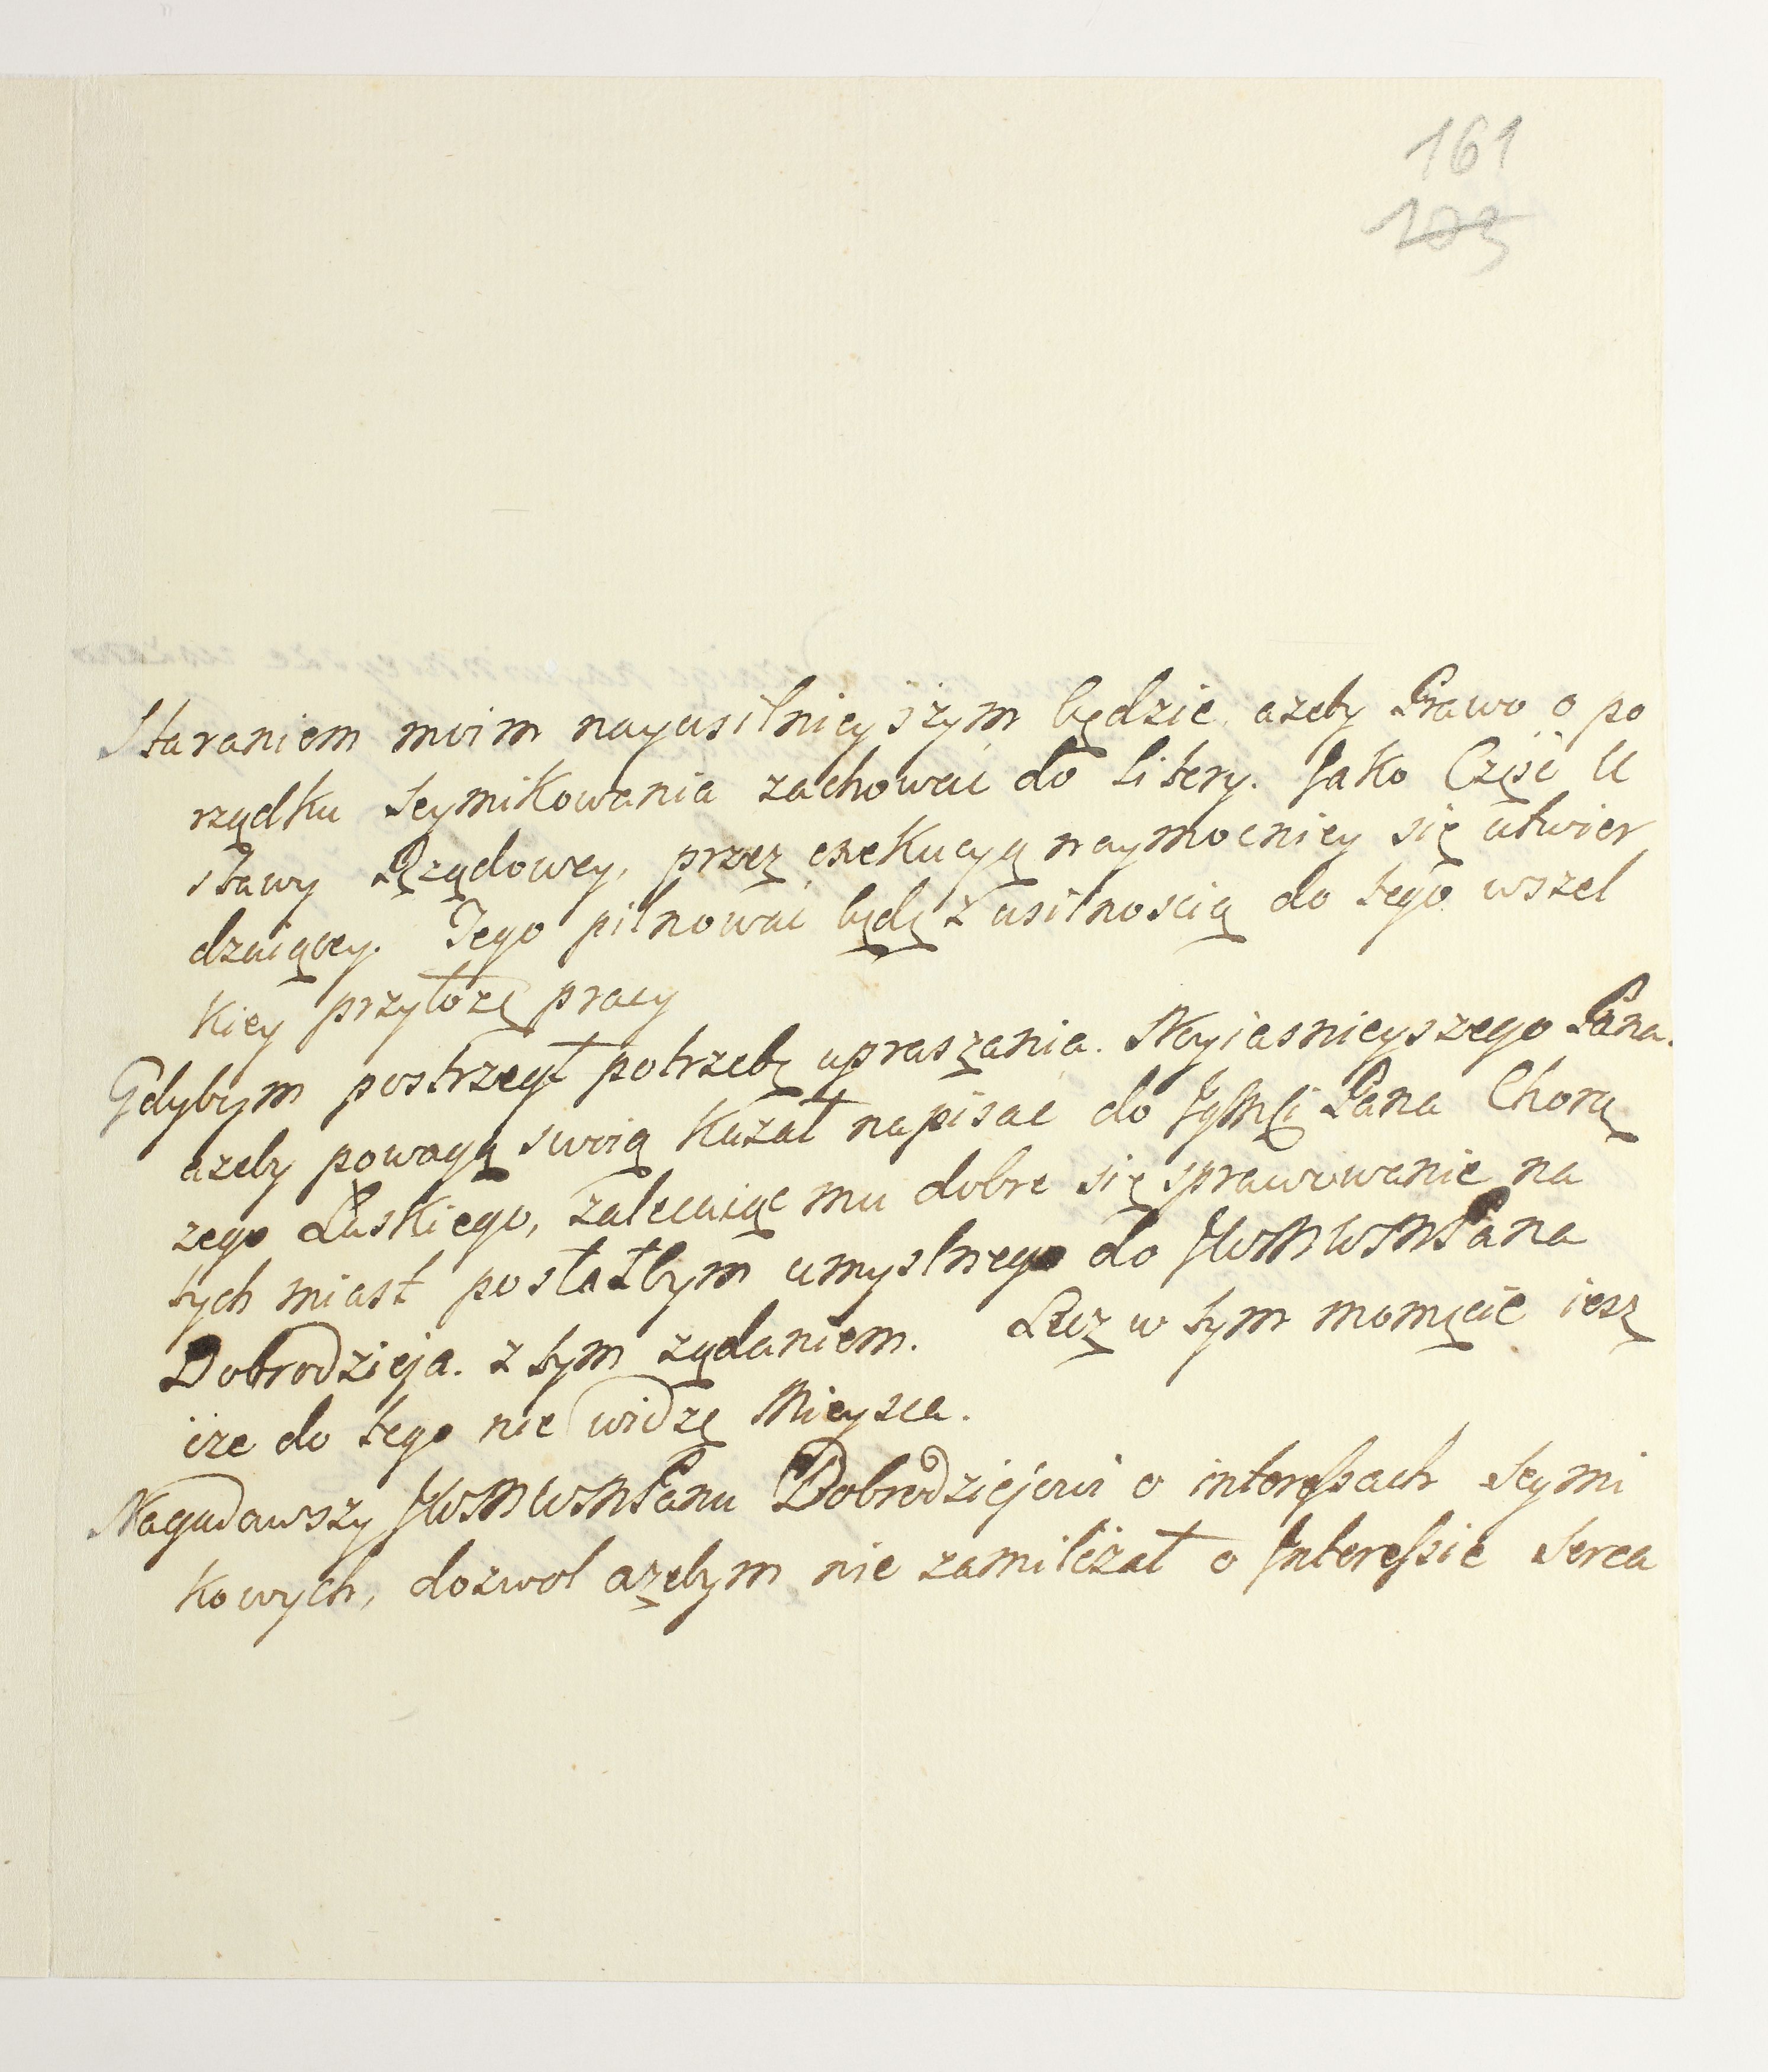 161
103
Staraniem moim nayusilnieyszym będzie, azeby Prawo o po
rządku Seymikowania zachować do litery. Jako Część U
stawy Rządowey, przez exekucyą naymocniey się utwier
dzaiącey. Tego pilnować będę z usilnoscią do tego wszel
kiey przyłozę pracy
Gdybym postrzegł potrzebę upraszania. Nayiasnieyszego Pana.
azeby powagą swoią kazał napisac do JgMCi Pana Chorą
zego Łuskiego, zalecaiąc mu dobre się sprawowanie na
tych miast posłałbym umyslnego do JWMWMPana
Dobrodzieja. z tym ządaniem. Lecz w tym momęcie iesz
cze do tego nie widzę Mieysca.
Nagadawszy JWMWMPanu Dobrodziejowi o interessach Seymi
kowych, dozwol azebym nie zamilczał o Interessie Serca